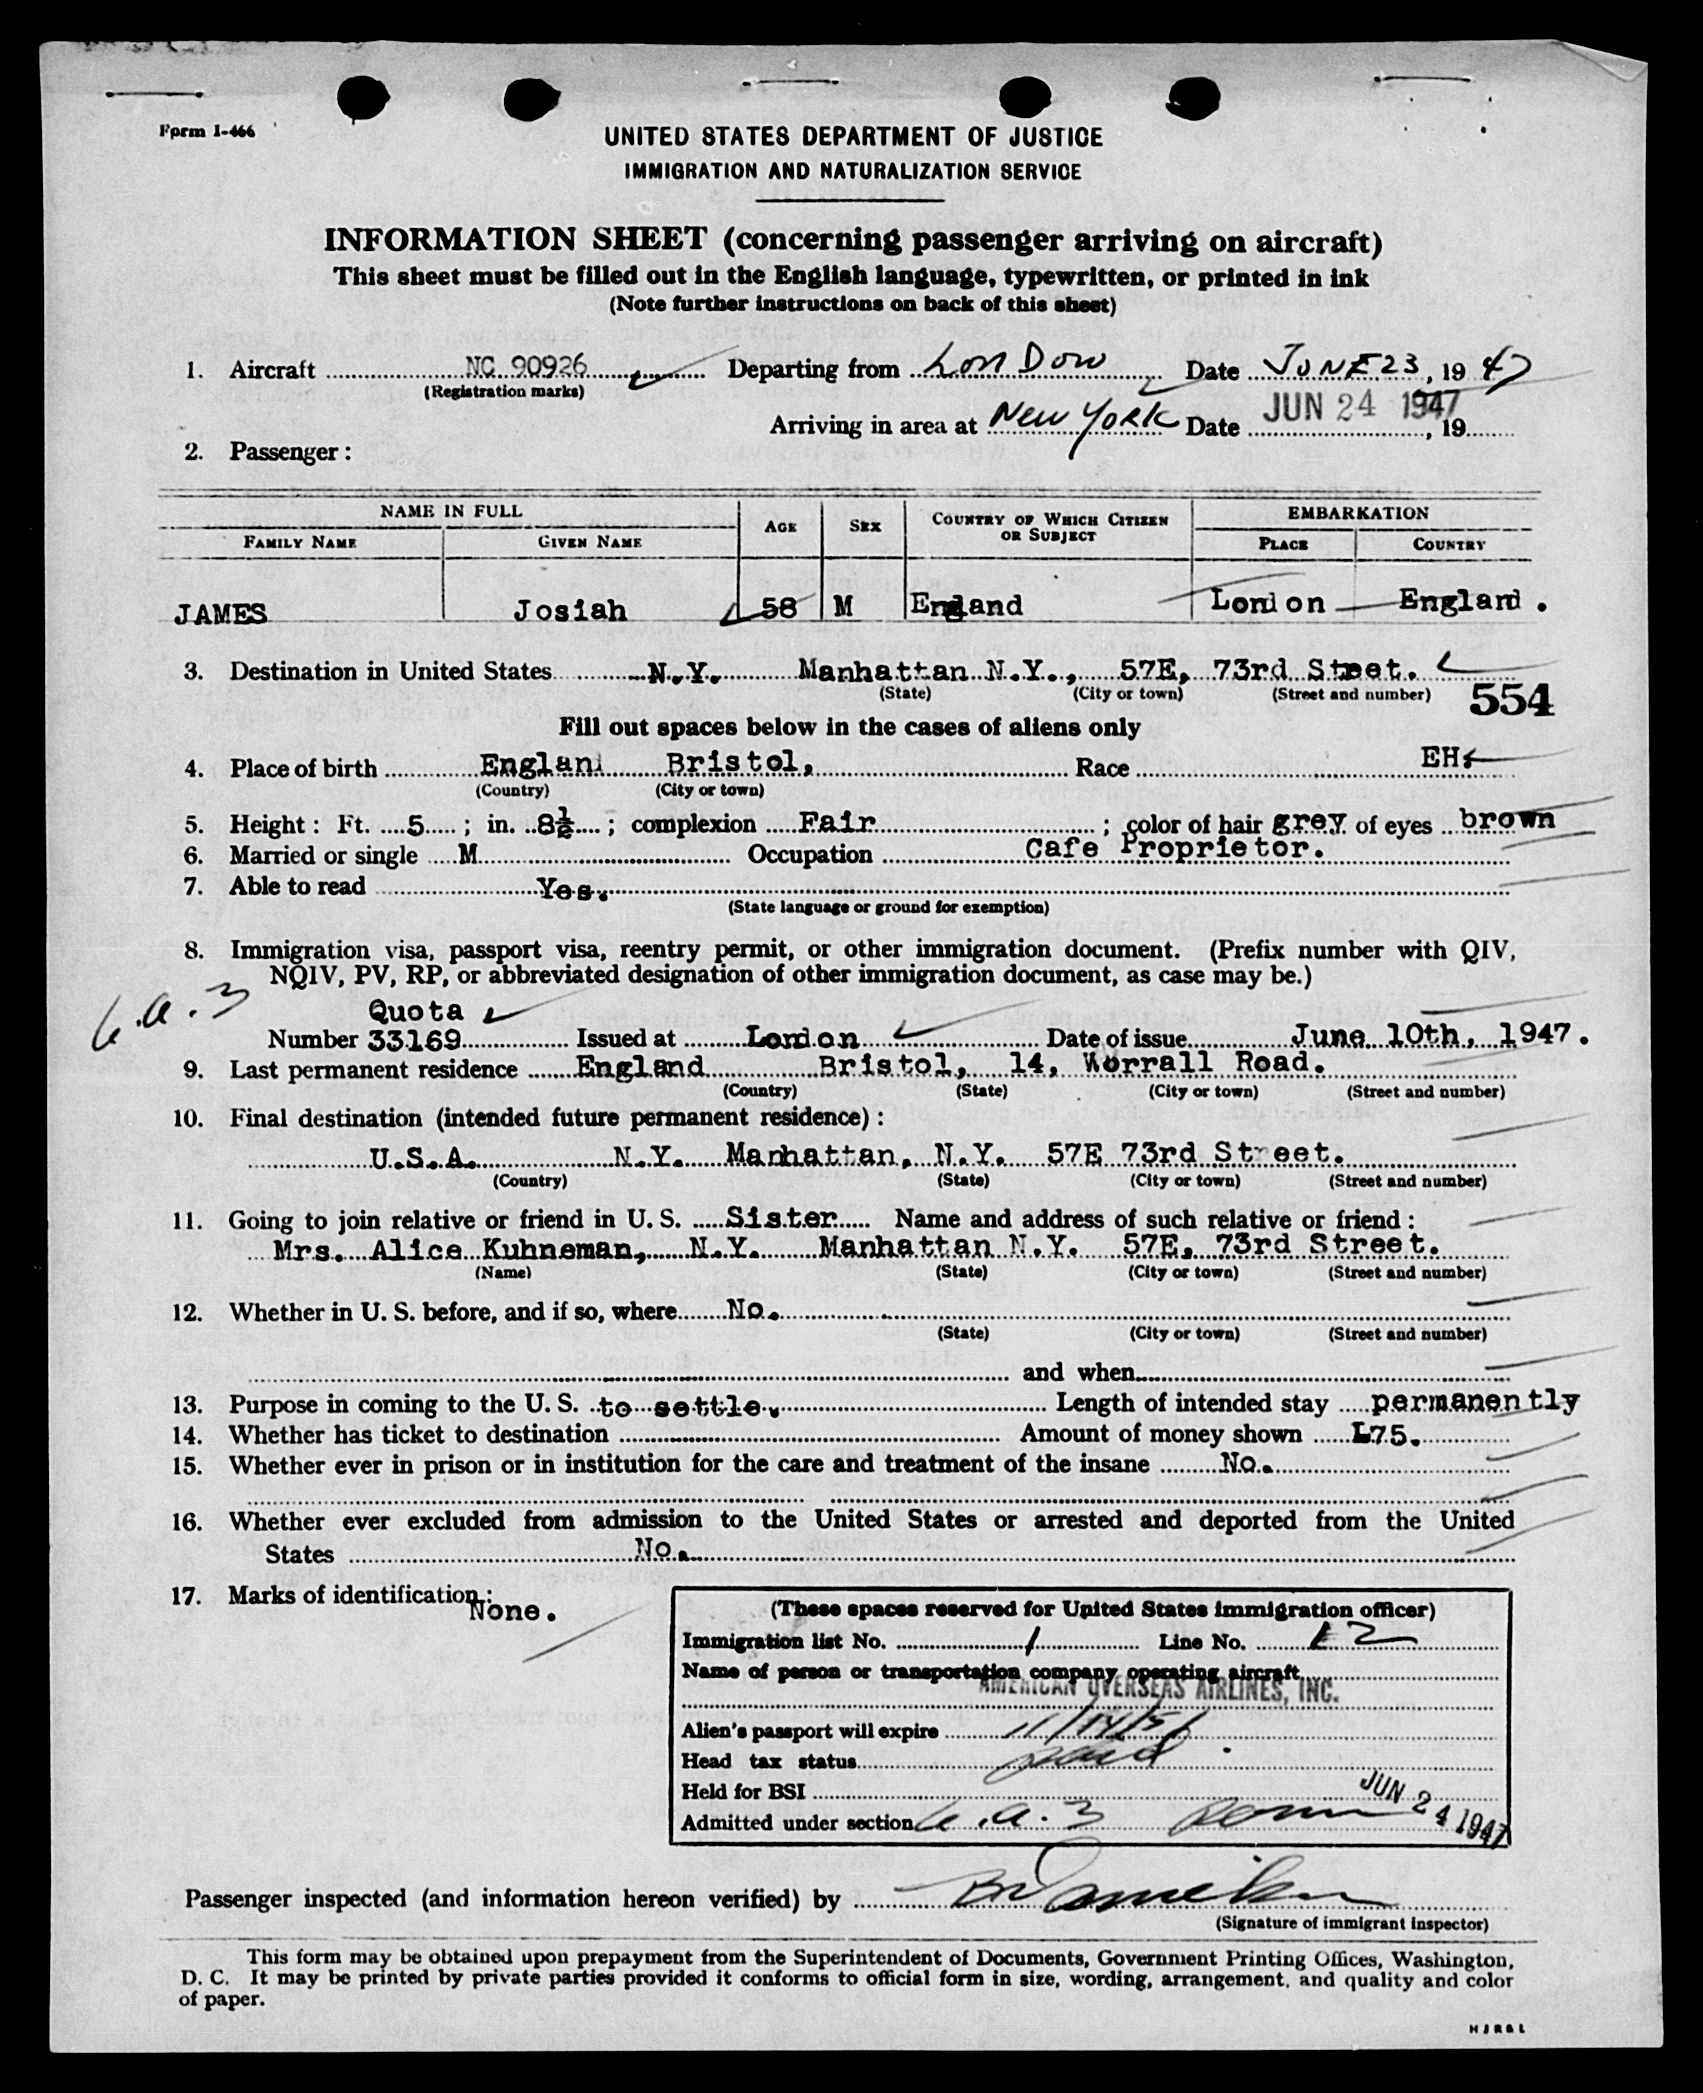 Form I-466
UNITED STATES DEPARTMENT OF JUSTICE
IMMIGRATION AND NATURALIZATION SERVICE
INFORMATION SHEET (concerning passenger arriving on aircraft)
This sheet must be filled out in the English language, typewritten, or printed in ink
(Note further instructions on back of this sheet)
1. Aircraft NC 90926 Departing from LONDON Date JUNE 23, 1947
(Registration marks)
Arriving in area at NEW YORK Date JUN 24 1947, 19
2. Passenger:
NAME IN FULL AGE SEX COUNTRY OF WHICH CITIZEN OR SUBJECT EMBARKATION
FAMILY NAME GIVEN NAME PLACE COUNTRY
JAMES Josiah 58 M England London England.
3. Destination in United States N.Y. Manhattan N.Y., 57E, 73rd Street.
(State) (City or town) (Street and number)
554
Fill out spaces below in the cases of aliens only
4. Place of birth England Bristol, Race EH.
(Country) (City or town)
5. Height: Ft. 5; in. 8½; complexion Fair; color of hair grey of eyes brown
6. Married or single M Occupation Cafe Proprietor.
7. Able to read Yes.
(State language or ground for exemption)
8. Immigration visa, passport visa, reentry permit, or other immigration document. (Prefix number with QIV,
NQIV, PV, RP, or abbreviated designation of other immigration document, as case may be.)
6.a.3
Quota
Number 33169 Issued at London Date of issue June 10th, 1947.
9. Last permanent residence England Bristol, 14, Worrall Road.
(Country) (State) (City or town) (Street and number)
10. Final destination (intended future permanent residence):
U.S.A. N.Y. Manhattan, N.Y. 57E 73rd Street.
(Country) (State) (City or town) (Street and number)
11. Going to join relative or friend in U. S. Sister Name and address of such relative or friend:
Mrs. Alice Kuhneman, N.Y. Manhattan N.Y. 57E, 73rd Street.
(Name) (State) (City or town) (Street and number)
12. Whether in U. S. before, and if so, where No.
(State) (City or town) (Street and number)
and when
13. Purpose in coming to the U. S. to settle. Length of intended stay permanently
14. Whether has ticket to destination Amount of money shown £75.
15. Whether ever in prison or in institution for the care and treatment of the insane No.
16. Whether ever excluded from admission to the United States or arrested and deported from the United
States No.
17. Marks of identification: None.
(These spaces reserved for United States immigration officer)
Immigration list No. 1 Line No. 12
Name of person or transportation company operating aircraft
AMERICAN OVERSEAS AIRLINES, INC.
Alien's passport will expire 11/14/51
Head tax status paid
Held for BSI
Admitted under section 6.a.3 JUN 24 1947
Passenger inspected (and information hereon verified) by
(Signature of immigrant inspector)
This form may be obtained upon prepayment from the Superintendent of Documents, Government Printing Offices, Washington,
D. C. It may be printed by private parties provided it conforms to official form in size, wording, arrangement, and quality and color
of paper.
HJR&L